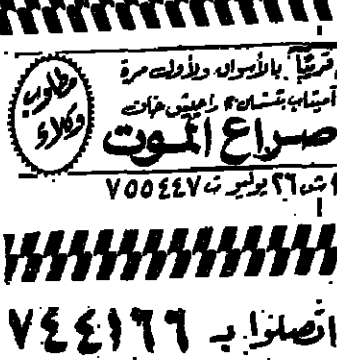 قريباً بالأسواق ولأول مرة
أميتاب بتشان & راجيش خان
صراع الموت
مطلوب
وكلاء
١ ش ٢٦ يوليو ت ٧٥٥٤٤٧
اتصلوا بـ ٧٤٤١٦٦